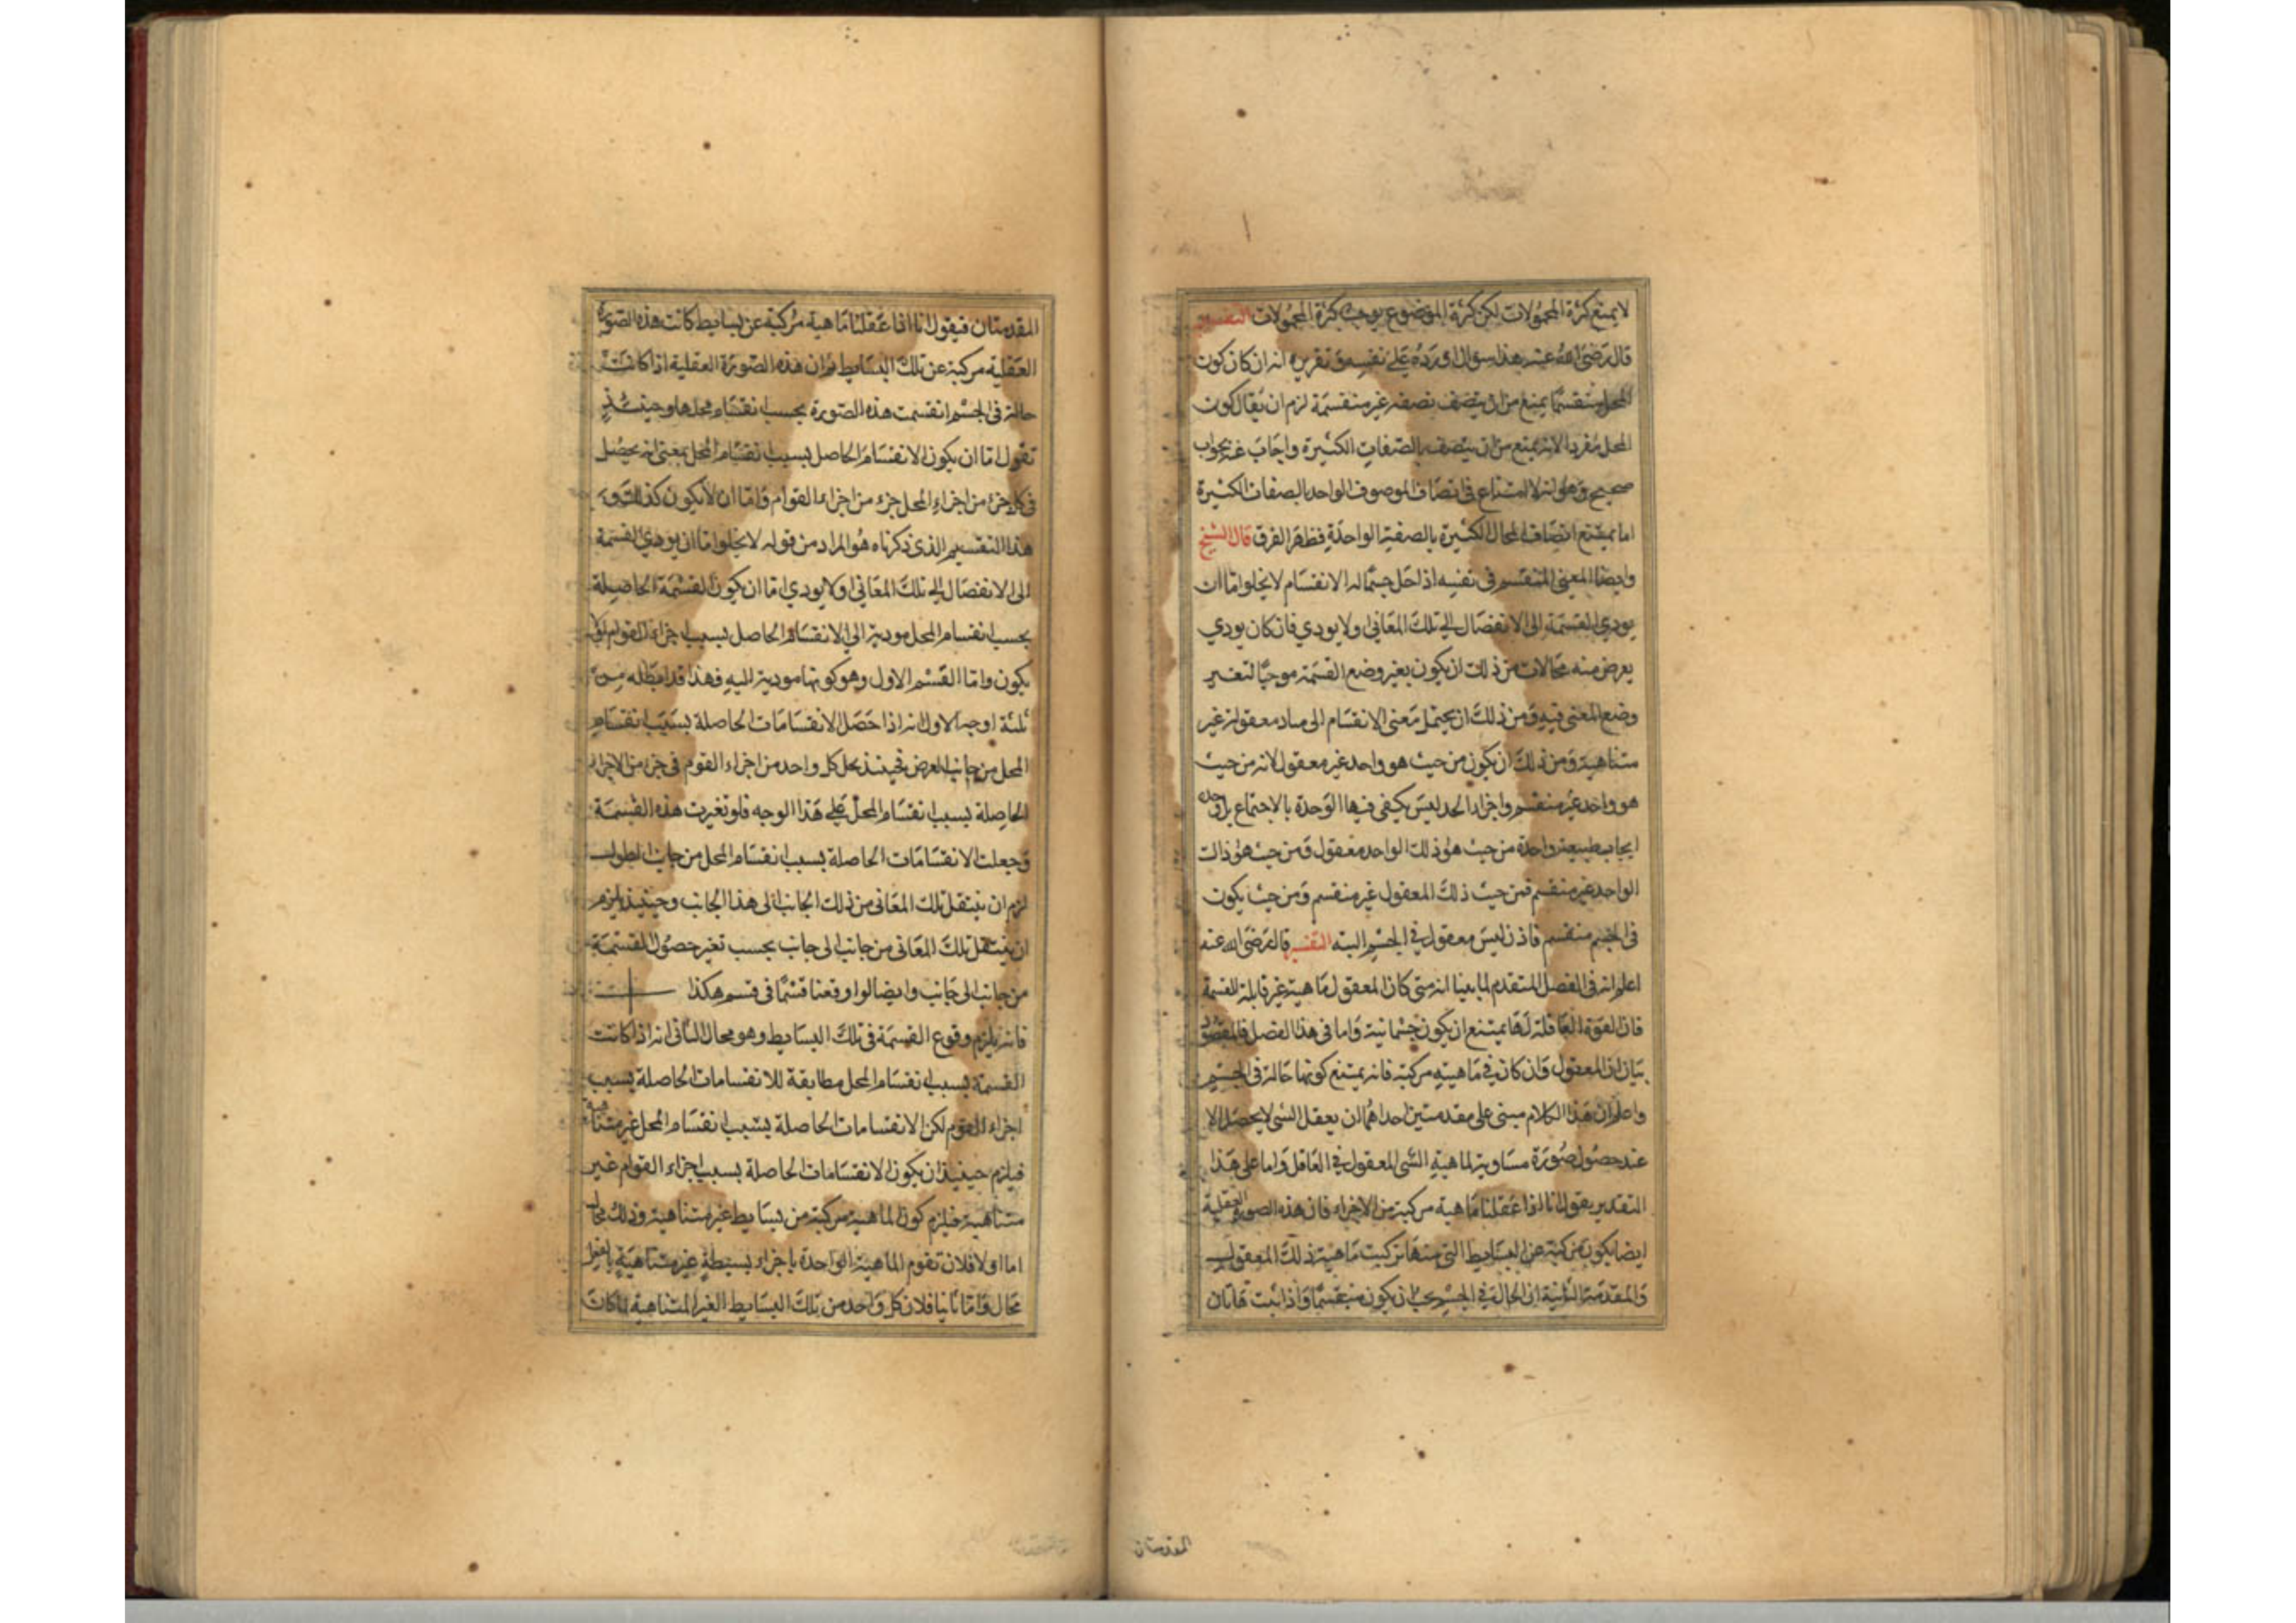 لا يمنع كثرة المحمولات لكن كثرة الموضوع يوجب كثرة المحمولات التفسير
قال رضى الله عنه هذا سؤال اورده على نفسه وتقريره انه ان كان كون
المحل منقسما يمنع من ان يتصف بصفه غير منقسمة لزم ان يقال كون
المحل مفردا لانه يمتنع من ان يتصف بالصفات الكثيرة واجاب عنه بجواب
صحيح وهو انه لا امتناع فى اتصاف الموصوف الواحد بالصفات الكثيرة
اما يمتنع اتصاف المحال الكثيرة بالصفة الواحدة فظهر الفرق قال الشيخ
وايضا المعنى المنقسم فى نفسه اذا حل جسما له الانقسام لا يخلوا اما ان
يودى القسمة الى الانفصال الى تلك المعانى اولا يودي فان كان يودي
يعرض منه محالات من ذلك ان يكون بغير وضع القسمة موجبا لتغير
وضع المعنى فيه ومن ذلك ان يحتمل معنى الانقسام الى مباد معقولة غير
متناهية ومن ذلك ان يكون من حيث هو واحد غير معقول لانه من حيث
هو واحد غير منقسم واجزاء الحد ليس يكفى فيها الوحدة بالاجتماع بل وحده
ايجاب طبيعة واحدة من حيث هو ذلك الواحد معقول ومن حيث هو ذالت
الواحد غير منقسم فمن حيث ذلك المعقول غير منقسم ومن حيث يكون
فى الجسم منقسم فاذن ليس معقول فى الجسم البته التفسير قال رضى الله عنه
اعلم انه فى الفصل المتقدم لما بينا انه متى كان المعقول ماهية غير قابلة للقسمة
فان القوة العاقلة لها يمتنع ان يكون جسمانية واما فى هذا الفصل فالمقصود
بيان ان المعقول وان كان فى ماهيته مركبة فانه يمتنع كونها حالة فى الجسم
واعلم ان هذا الكلام مبنى على مقدمتين احداهما ان يعقل الشى لا يحصل الا
عند حصول صورة مساوية لماهية الشى المعقول فى العاقل واما على هذا
التقدير يقول انا اذا عقلنا ماهية مركبة من الاجزاء فان هذه الصورة العقلية
ايضا يكون مركبة من البسايط التى منها تركبت ماهية ذلك المعقول
والمقدمة الثانية ان الحال فى الجسم يجب ان يكون منقسما واذا ثبت هاتان
المقدمتان
المقدمتان فيقول انا اذا عقلنا ماهية مركبة عن بسايط كانت هذه الصورة
العقلية مركبة عن تلك البسايط وان هذه الصورة العقلية اذا كانت
حالة فى الجسم انقسمت هذه الصورة بحسب انقسام محلها وحينئذ
نقول اما ان يكون الانقسام الحاصل بسبب انقسام المحل بمعنى انه يحصل
فى كل جزء من اجزاء المحل جزء من اجزاء القوام واما ان لا يكون كذلك و
هذا التقسيم الذى ذكرناه هو المراد من قوله لا يخلوا اما ان يودي القسمة
الى الانفصال الى تلك المعانى اولا يودي اما ان يكون القسمة الحاصلة
بحسب انقسام المحل مودية الى الانقسام الحاصل بسبب اجزاء القوام اولا
يكون واما القسم الاول وهو كونها مودية اليه فهذا قد ابطله من
ثلثة اوجه الاول انه اذا حصل الانقسامات الحاصلة بسبب انقسام
المحل من جانب العرض فحينئذ يحل كل واحد من اجزاء القوم فى جزء من الاجزاء
الحاصلة بسبب انقسام المحل على هذا الوجه فلو تغيرت هذه القسمة
وجعلت الانقسامات الحاصلة بسبب انقسام المحل من جانب الطول
لزم ان ينتقل تلك المعانى من ذلك الجانب الى هذا الجانب وحينئذ يلزم
ان ينتقل تلك المعانى من جانب الى جانب بحسب تغير حصول القسمة
من جانب الى جانب وايضا لو اوقعنا قسما فى قسم هكذا
فانه يلزم وقوع القسمة فى تلك البسايط وهو محال الثانى انه اذا كانت
القسمة بسبب انقسام المحل مطابقة للانقسامات الحاصلة بسبب
اجزاء القوم لكن الانقسامات الحاصلة بسبب انقسام المحل غير متناهية
فيلزم حينئذ ان يكون الانقسامات الحاصلة بسبب اجزاء القوام غير
متناهية فيلزم كون الماهية مركبة من بسايط غير متناهية وذلك محال
اما اولا فلان تقوم الماهية الواحدة باجزاء بسيطة غير متناهية بالفعل
محال واما ثانيا فلان كل واحد من تلك البسايط الغير المتناهية لما كان